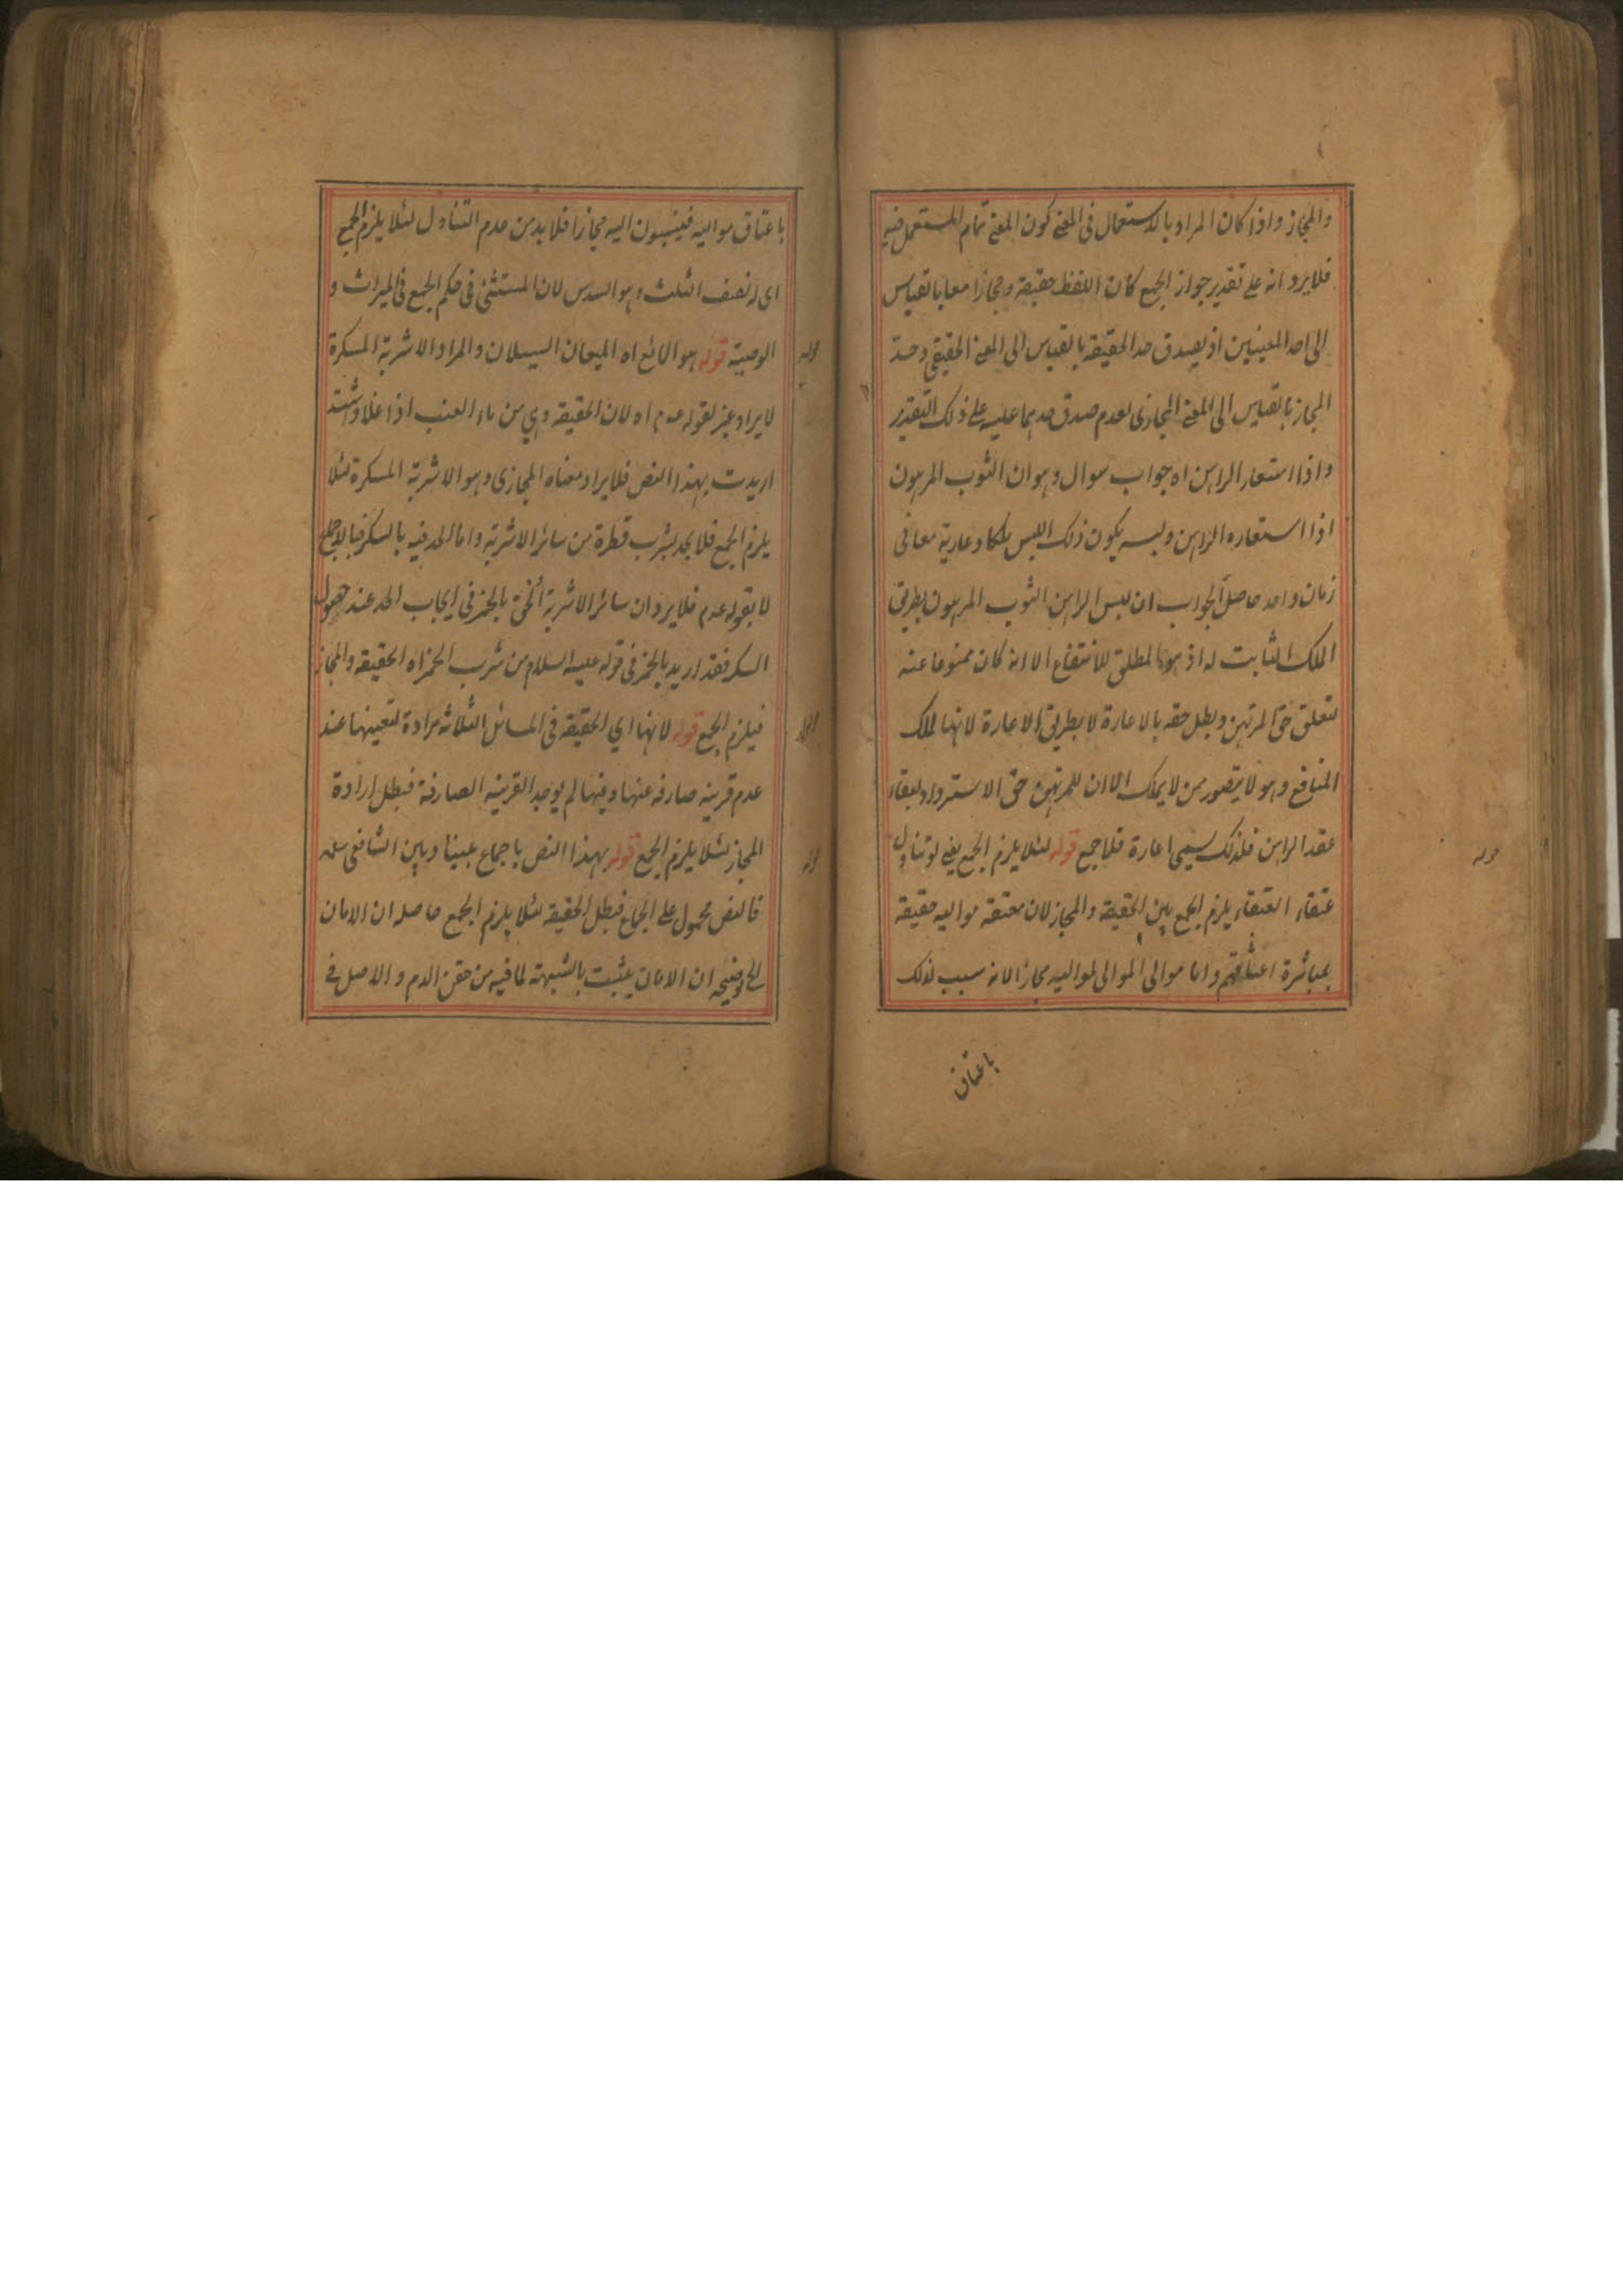 والمجاز واذا كان المراد بالاستعمال فى المعنى كون المعنى تمام المستعمل فيه
فلا يرد انه على تقدير جواز الجمع كان اللفظ حقيقة ومجازا معا بالقياس
الى احد المعنيين اذ يصدق حد الحقيقة بالقياس الى المعنى الحقيقي وحد
المجاز بالقياس الى المعنى المجازى لعدم صدق حدهما عليه على ذلك التقدير
واذا استعار الراهن اه جواب سوال وهو ان الثوب المرهون
اذا استعاره الراهن ولبسه يكون ذلك اللبس ملكا وعارية معا فى
زمان واحد حاصل الجواب ان لبس الراهن الثوب المرهون بطريق
الملك الثابت له اذ هو المطلق للانتفاع الا انه كان ممنوعا عنه
لتعلق حق المرتهن وبطل حقه بالاعارة لا بطريق الاعارة لانها تملك
المنافع وهو لا يتصور ممن لا يملك الا ان للمرتهن حق الاسترداد لبقاء
عقد الراهن فلذلك سمى اعارة فلا جمع قوله لئلا يلزم الجمع يعنى لو تناول
عتقاء العتقاء يلزم الجمع بين الحقيقة والمجاز لان معتقه مواليه حقيقة
بمباشرة اعتاقهم واما موالى الموالى لمواليه مجازا لانه سبب لذلك
باعتاق
باعتاق مواليه فينسبون اليه مجازا فلا بد من عدم التناول لئلا يلزم الجمع
اى له نصف الثلث وهو السدس لان المستثنى فى حكم الجمع فى الميراث و
الوصية قوله هو المائع اه الميعان السيلان والمراد الاشربة المسكرة
لا يراد غير لقوله عدم اه لان الحقيقة وهي من ماء العنب اذا غلا واشتد
اريدت بهذا النص فلا يراد معناه المجازى وهو الاشربة المسكرة لئلا
يلزم الجمع فلا يحد بشرب قطرة من سائر الاشربة واما الحد فيه بالسكر فبالاجماع
لا بقوله عدم فلا يرد ان سائر الاشربة ألحق بالخمر فى ايجاب الحد عند حصول
السكر فقد اريد بالخمر فى قوله عليه السلام من شرب الخمر اه الحقيقة والمجاز
فيلزم الجمع قوله لانها اي الحقيقة فى المسائل الثلاثة مرادة لتعيينها عند
عدم قرينه صارفه عنها وفيها لم يوجد القرينه الصارفة فبطل ارادة
المجاز لئلا يلزم الجمع قوله بهذا النص باجماع بيننا وبين الشافعى
فالنص محمول على الجماع فبطل الحقيقة لئلا يلزم الجمع حاصله ان الامان
الخ توضيحه ان الامان يثبت بالشبهة لما فيه من حقن الدم والاصل فى